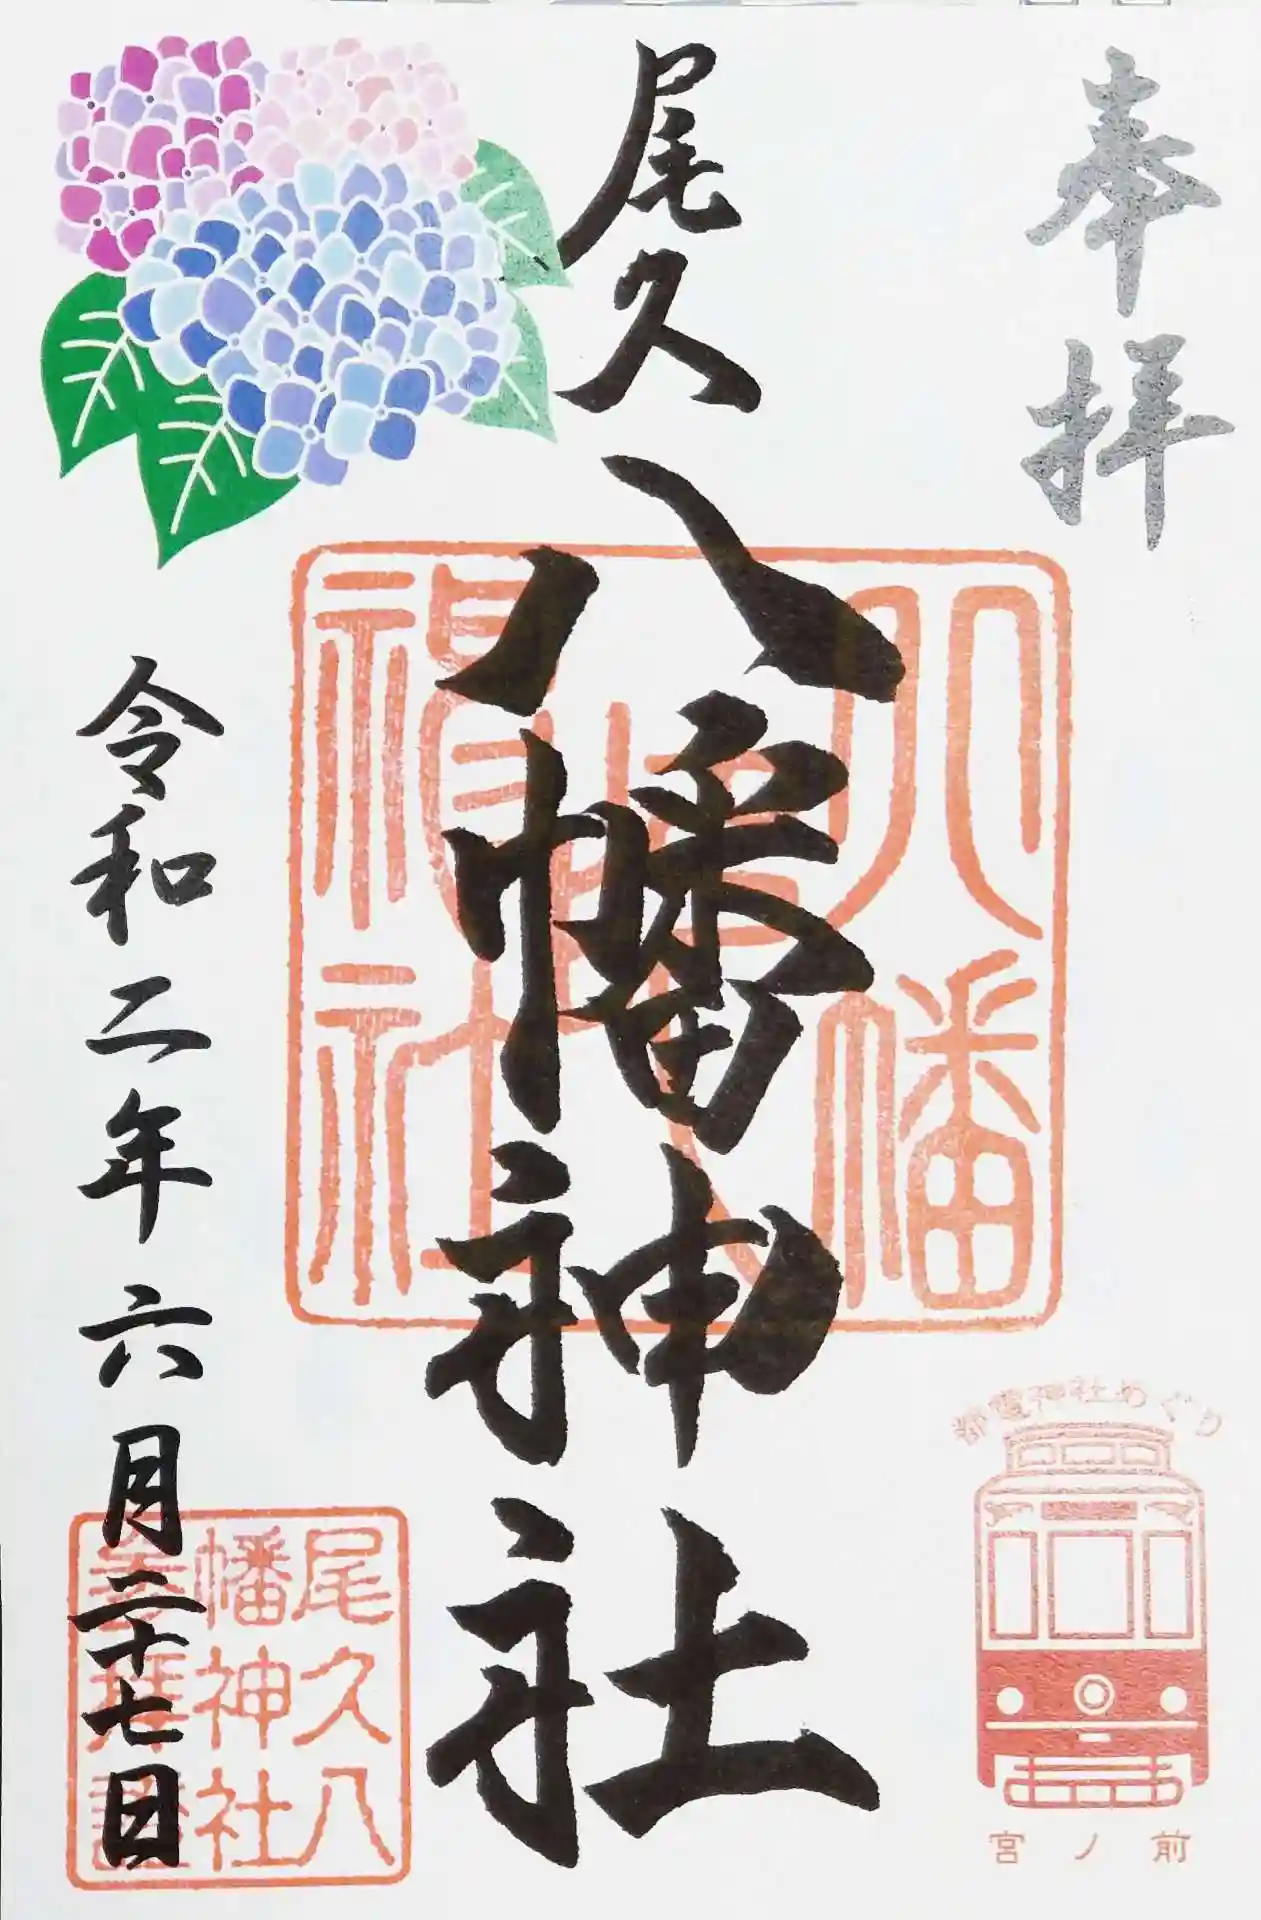 奉拝
尾久
八幡神社
令和二年六月二十七日
八幡
神社
尾久八
幡神社
奉拝證
都電神社めぐり
宮ノ前